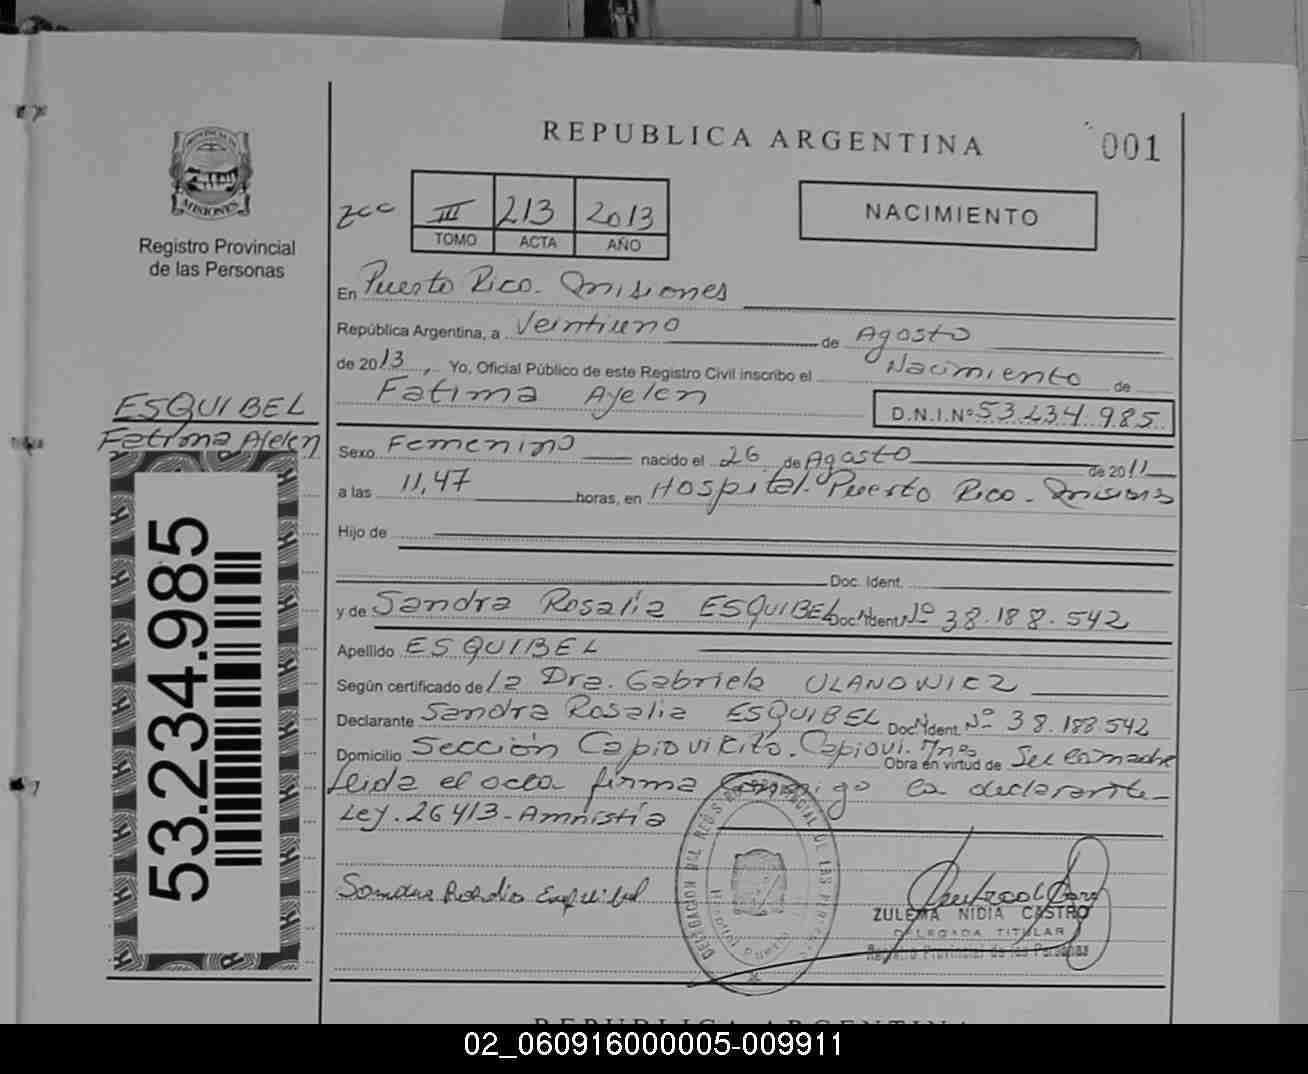 REPUBLICA ARGENTINA
001
MISIONES
Registro Provincial
de las Personas
III 213 2013
TOMO ACTA AÑO
NACIMIENTO
En Puerto Rico. Misiones
República Argentina, a Veintiuno de Agosto
de 2013, Yo, Oficial Público de este Registro Civil inscribo el Nacimiento de
Fatima Ayelen D.N.I.Nº 53.234.985
ESQUIBEL
Fatima Ayelen
53.234.985
Sexo Femenino nacido el 26 de Agosto de 2011
a las 11,47 horas, en Hospital. Puerto Rico. Misiones
Hijo de
Doc. Ident.
y de Sandra Rosalia ESQUIBEL Doc. Ident. Nº 38.188.542
Apellido ESQUIBEL
Según certificado de la Dra. Gabriela ULANOWICZ
Declarante Sandra Rosalia ESQUIBEL Doc. Ident. Nº 38.188.542
Domicilio Sección Capiovicito. Capiovi. Mnes Obra en virtud de Ser la madre
Leida el acta firma conmigo la declarante
Ley. 26413 - Amnistía
ZULEMA NIDIA CASTRO
DELEGADA TITULAR
Registro Provincial de las Personas
REPUBLICA ARGENTINA
02_060916000005-009911